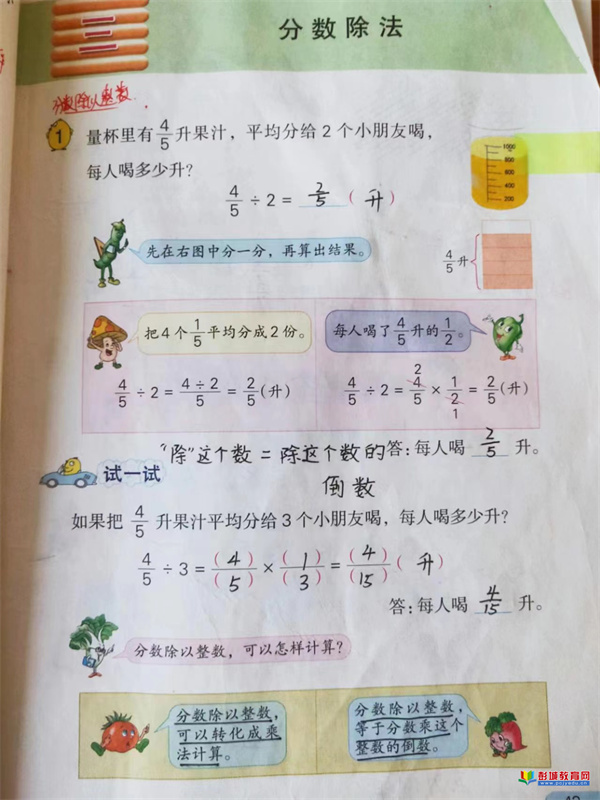 三
分数除法
分数除以整数
1 量杯里有 4/5 升果汁，平均分给 2 个小朋友喝，
每人喝多少升？
4/5 ÷ 2 = 2/5 （ 升 ）
1000
800
600
400
200
先在右图中分一分，再算出结果。
4/5 升
把 4 个 1/5 平均分成 2 份。
每人喝了 4/5 升的 1/2。
4/5 ÷ 2 = 4÷2/5 = 2/5 (升)
4/5 ÷ 2 = 4/5 × 1/2 = 2/5 (升)
2
1
“除”这个数 = 除这个数的
倒数
答：每人喝 2/5 升。
试一试
如果把 4/5 升果汁平均分给 3 个小朋友喝，每人喝多少升？
4/5 ÷ 3 = (4)/(5) × (1)/(3) = (4)/(15) （ 升 ）
答：每人喝 4/15 升。
分数除以整数，可以怎样计算？
分数除以整数，
可以转化成乘
法计算。
分数除以整数，
等于分数乘这个
整数的倒数。
彭城教育网